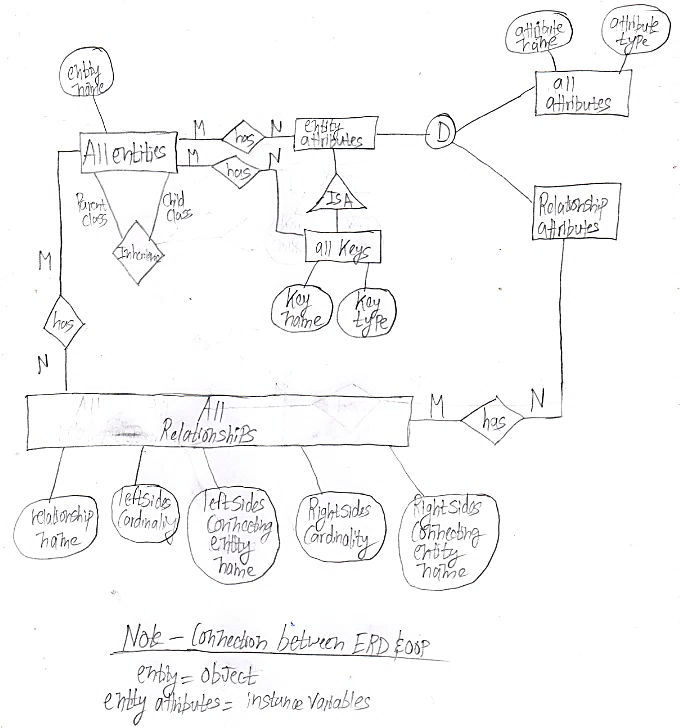 attribute
name
attribute
type
entity
name
all
attributes
M
has
N
entity
attributes
D
All entities
M
has
N
Parent
class
Child
class
IsA
Relationship
attributes
all Keys
M
Key
name
Key
type
has
N
All
Relationships
M
has
N
relationship
name
leftsides
Cardinality
leftsides
Connecting
entity
name
Rightsides
Cardinality
Rightsides
Connecting
entity
name
Note - Connection between ERD & OOP
entity = object
entity attributes = instance variables